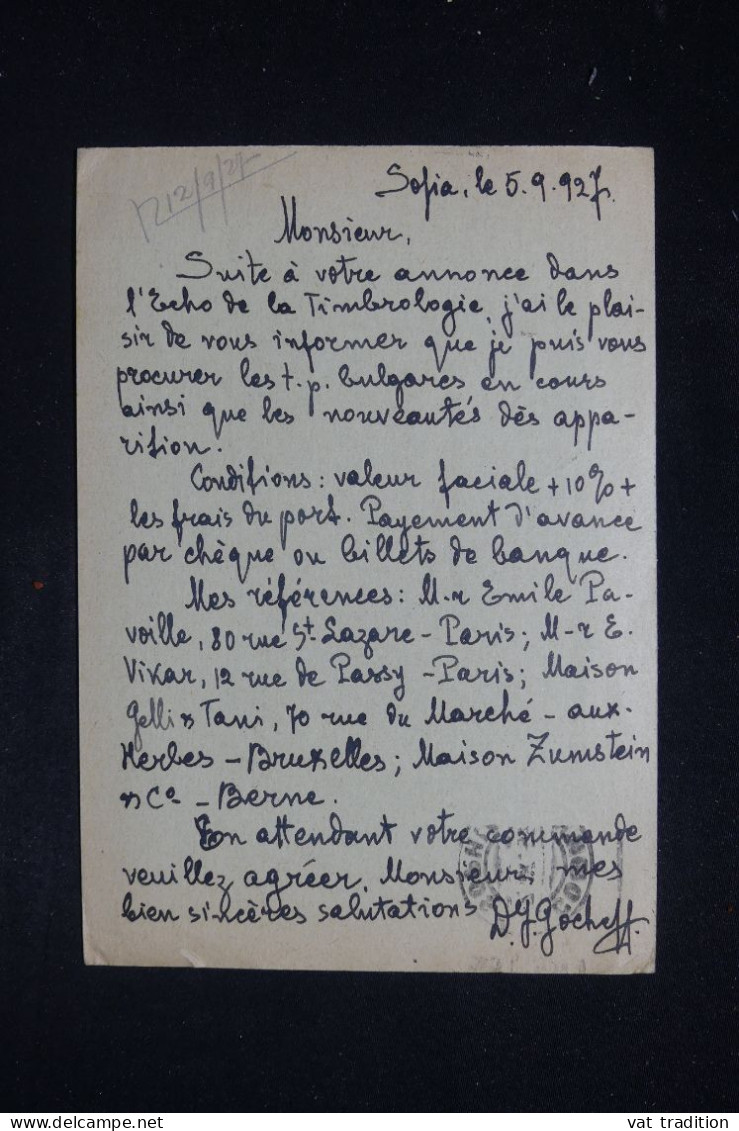 12/9/27
Sofia, le 5.9.927.
Monsieur,
Suite à votre annonce dans
l'Echo de la Timbrologie, j'ai le plai-
sir de vous informer que je puis vous
procurer les t.p. bulgares en cours
ainsi que les nouveautés dès appa-
rition.
Conditions: valeur faciale +10% +
les frais du port. Payement d'avance
par chèque ou billets de banque.
Mes références: M-r Emile Pa-
voille, 80 rue St Lazare - Paris; M-r E.
Vikar, 12 rue de Passy - Paris; Maison
Gelli & Tani, 70 rue du Marché - aux-
Herbes - Bruxelles; Maison Zumstein
& Co - Berne.
En attendant votre commande
veuillez agréer, Monsieur, mes
bien sincères salutations D.J.Gocheff.
vat tradition